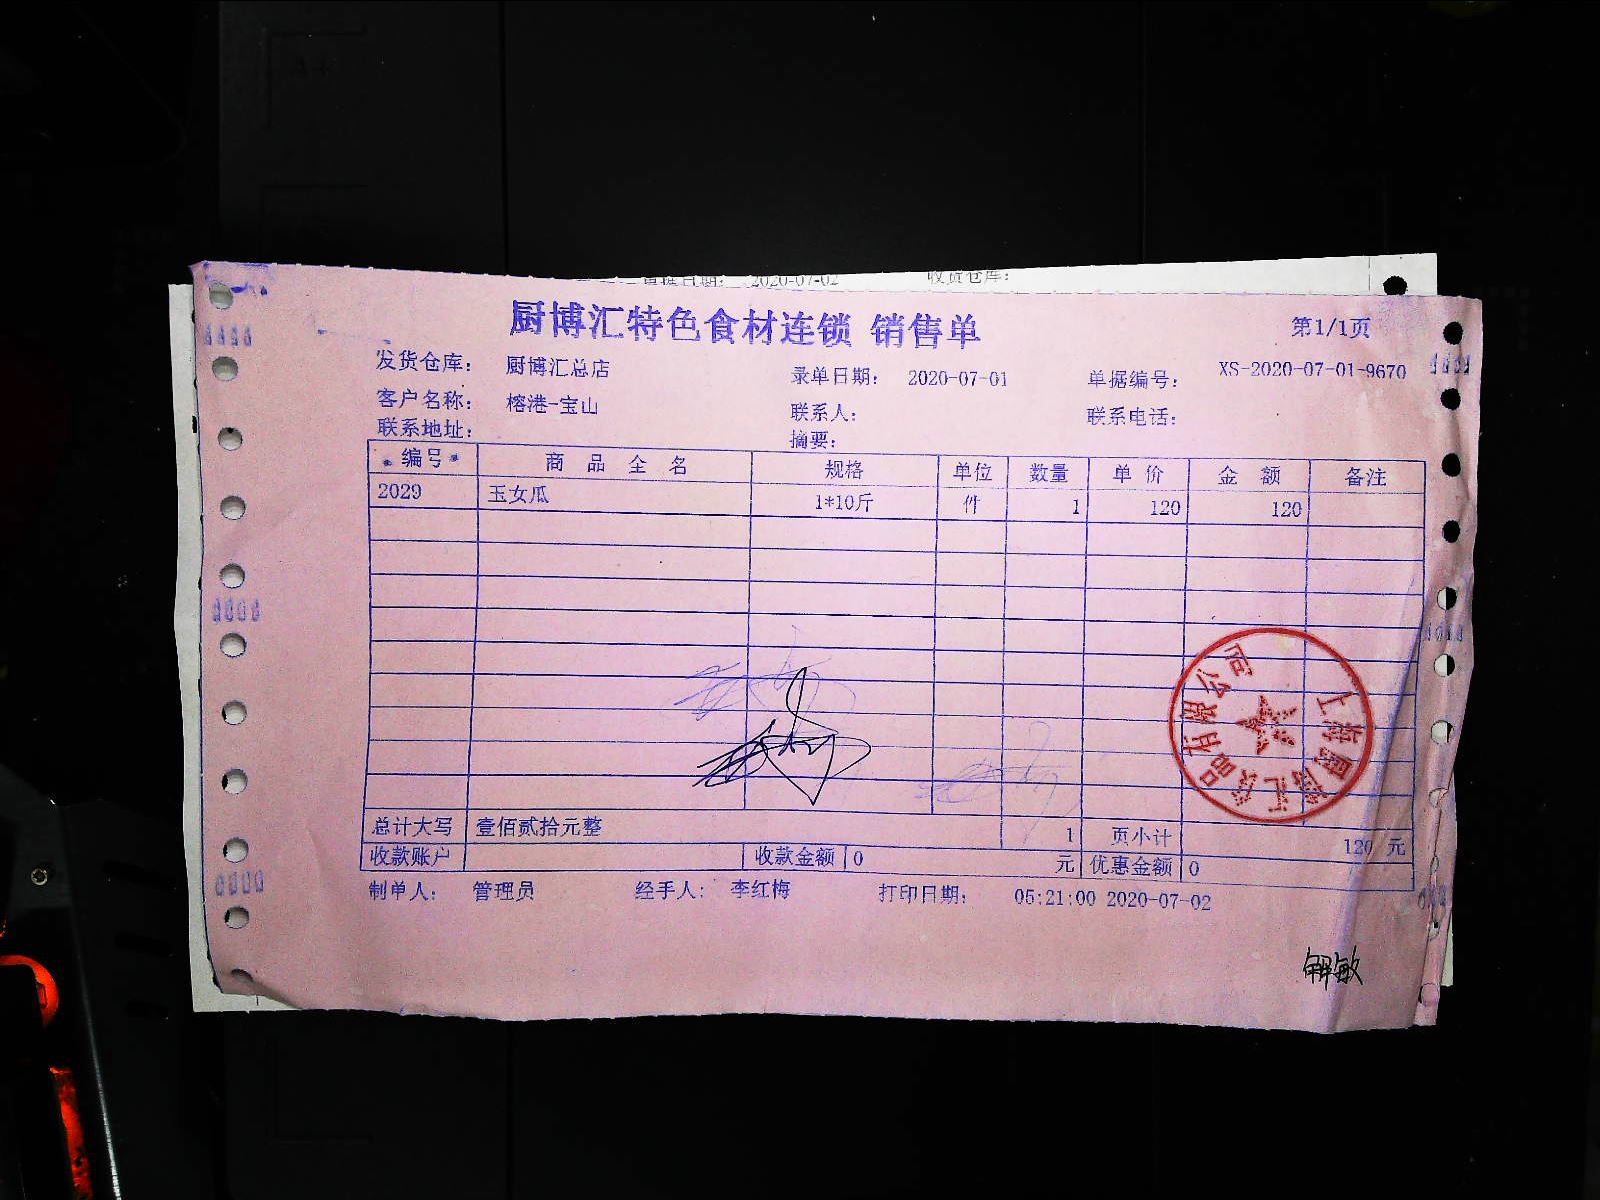 重建日期: 2020-07-02 收货仓库:
厨博汇特色食材连锁 销售单
第1/1页
发货仓库: 厨博汇总店 录单日期: 2020-07-01 单据编号: XS-2020-07-01-9670
客户名称: 榕港-宝山 联系人: 联系电话:
联系地址: 摘要:
编号 商品全名 规格 单位 数量 单价 金额 备注
2029 玉女瓜 1*10斤 件 1 120 120
总计大写 壹佰贰拾元整 1 页小计 120 元
收款账户 收款金额 0 元 优惠金额 0
制单人: 管理员 经手人: 李红梅 打印日期: 05:21:00 2020-07-02
上海厨博汇食品有限公司
解敏